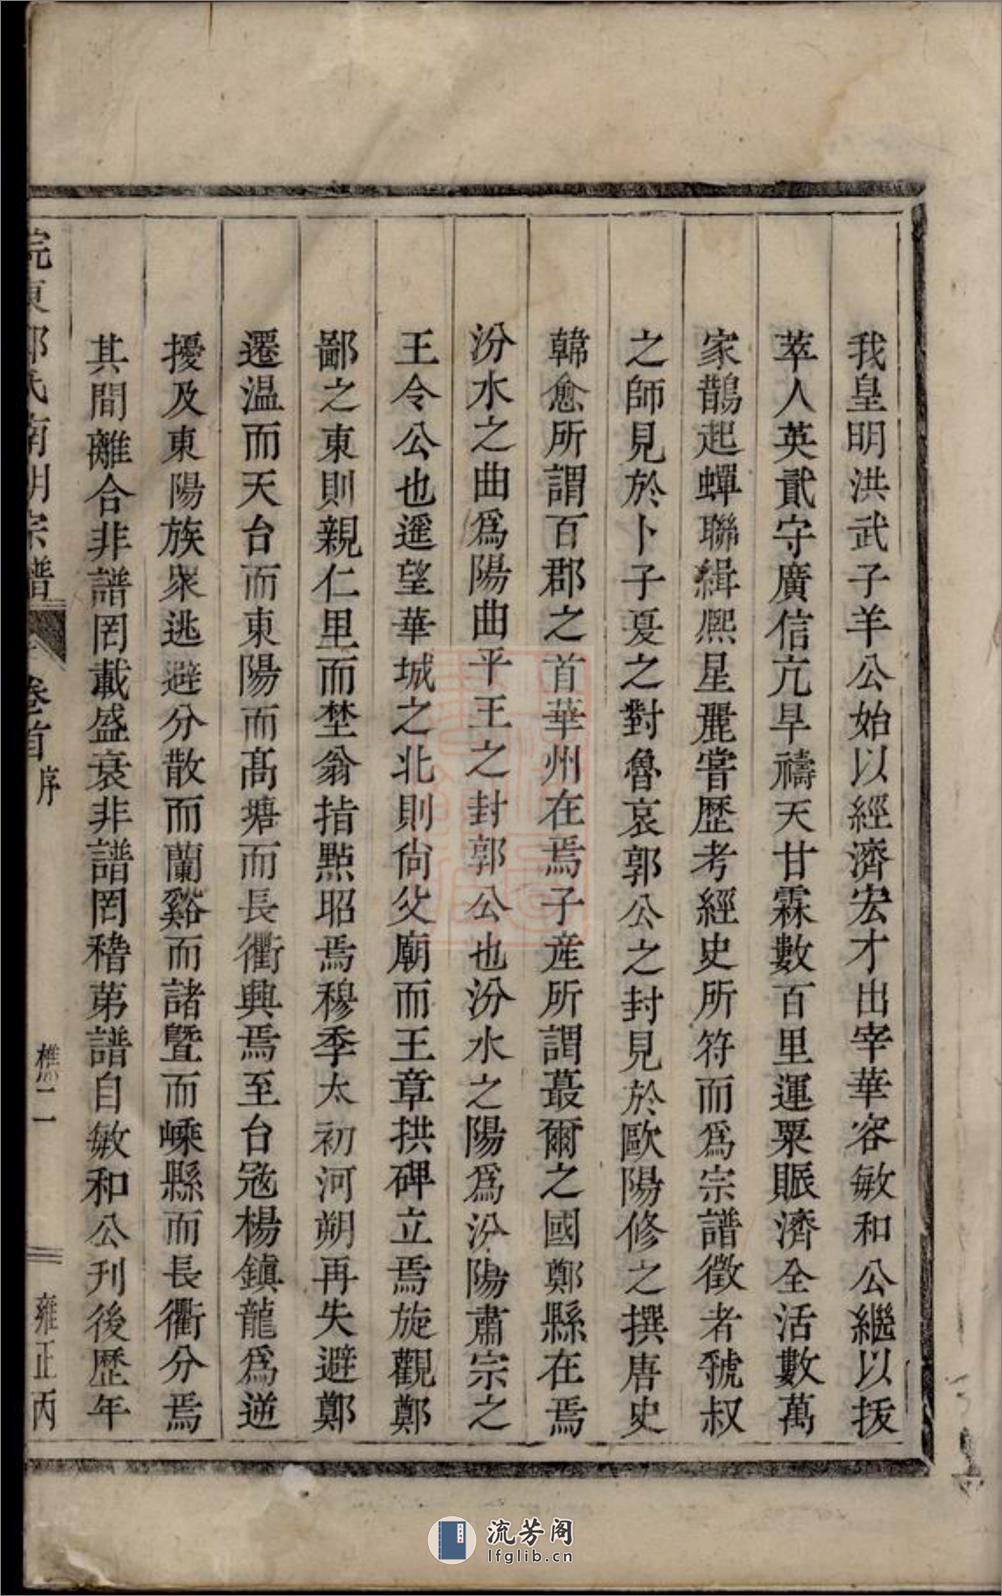 我皇明洪武子羊公始以經濟宏才出宰華容敏和公繼以拔
萃人英貳守廣信亢旱禱天甘霖數百里運粟賑濟全活數萬
家鵲起蟬聯緝熙星麗嘗歷考經史所符而爲宗譜徵者虢叔
之師見於卜子夏之對魯哀郭公之封見於歐陽修之撰唐史
韓愈所謂百郡之首華州在焉子産所謂蕞爾之國鄭縣在焉
汾水之曲爲陽曲平王之封郭公也汾水之陽爲汾陽肅宗之
王令公也遥望華城之北則尙父廟而王章拱碑立焉旋觀鄭
鄙之東則親仁里而埜翁指點昭焉穆季太初河朔再失避鄭
遷温而天台而東陽而髙塘而長衢興焉至台冦楊鎭龍爲逆
擾及東陽族衆逃避分散而蘭谿而諸曁而嵊縣而長衢分焉
其間離合非譜罔載盛衰非譜罔稽第譜自敏和公刋後歷年
東郭氏南明宗譜 卷首 序 樵二 雍正丙
流芳阁
lfglib.cn